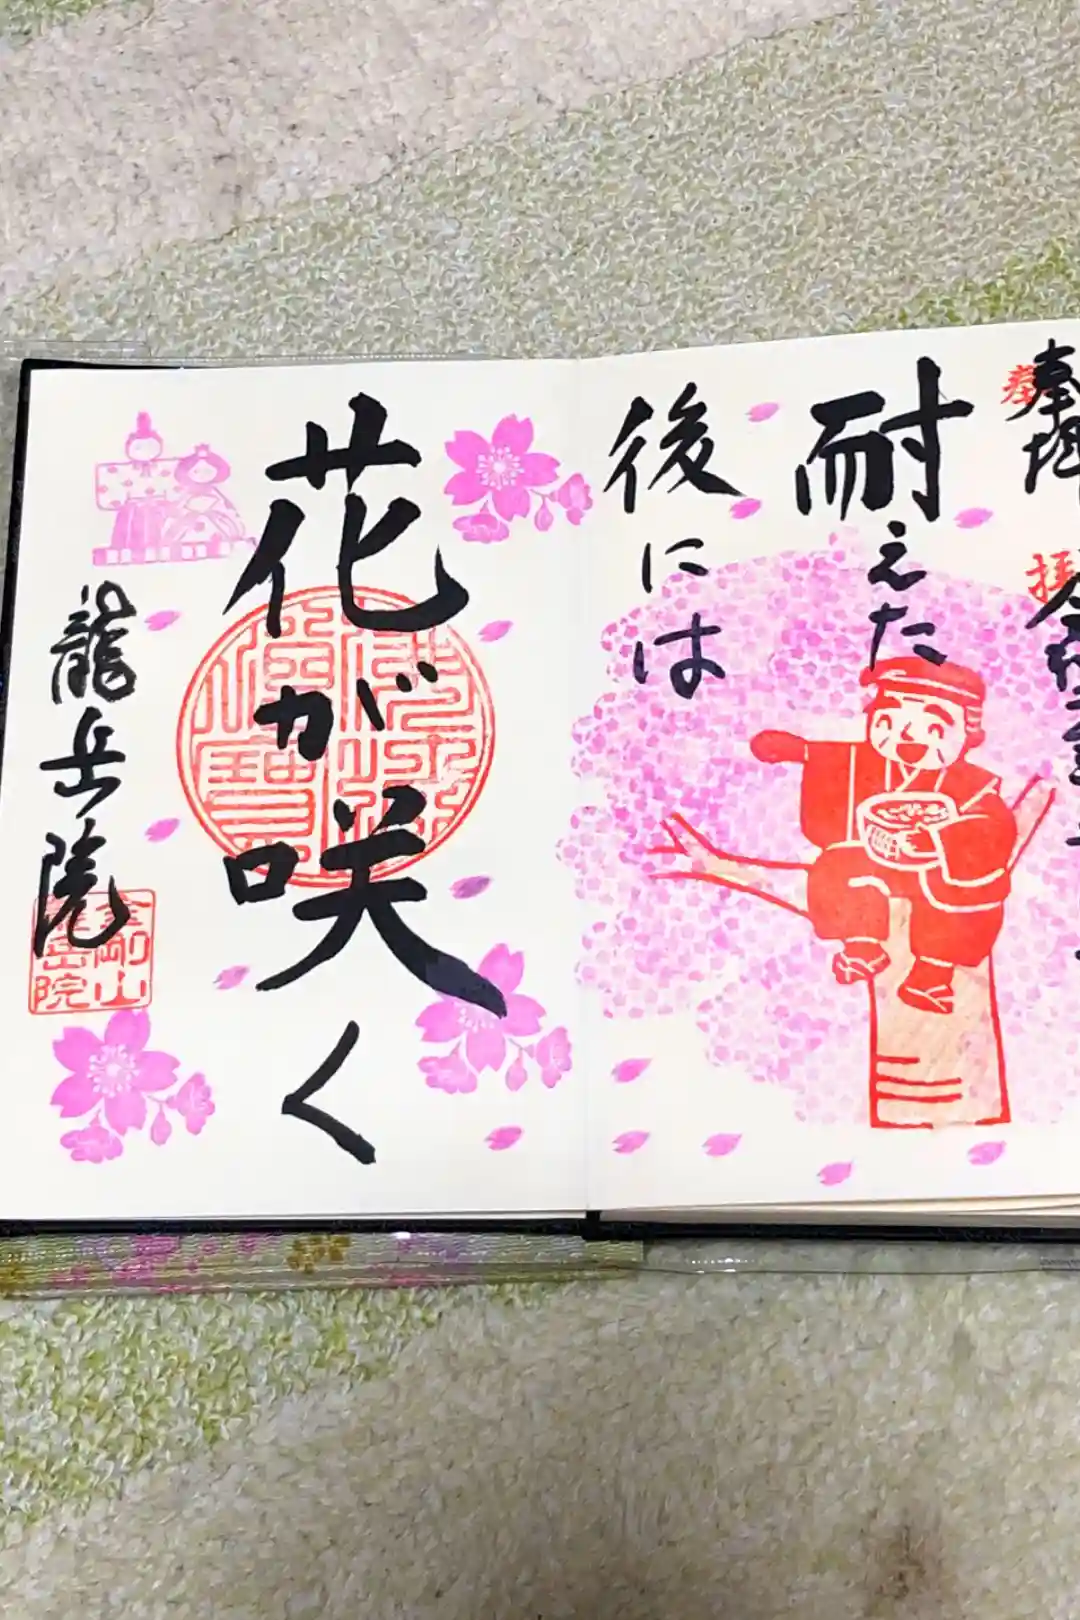 奉拝
耐えた
後には
花が咲く
龍岳院
奉
拝
金剛山
龍岳院